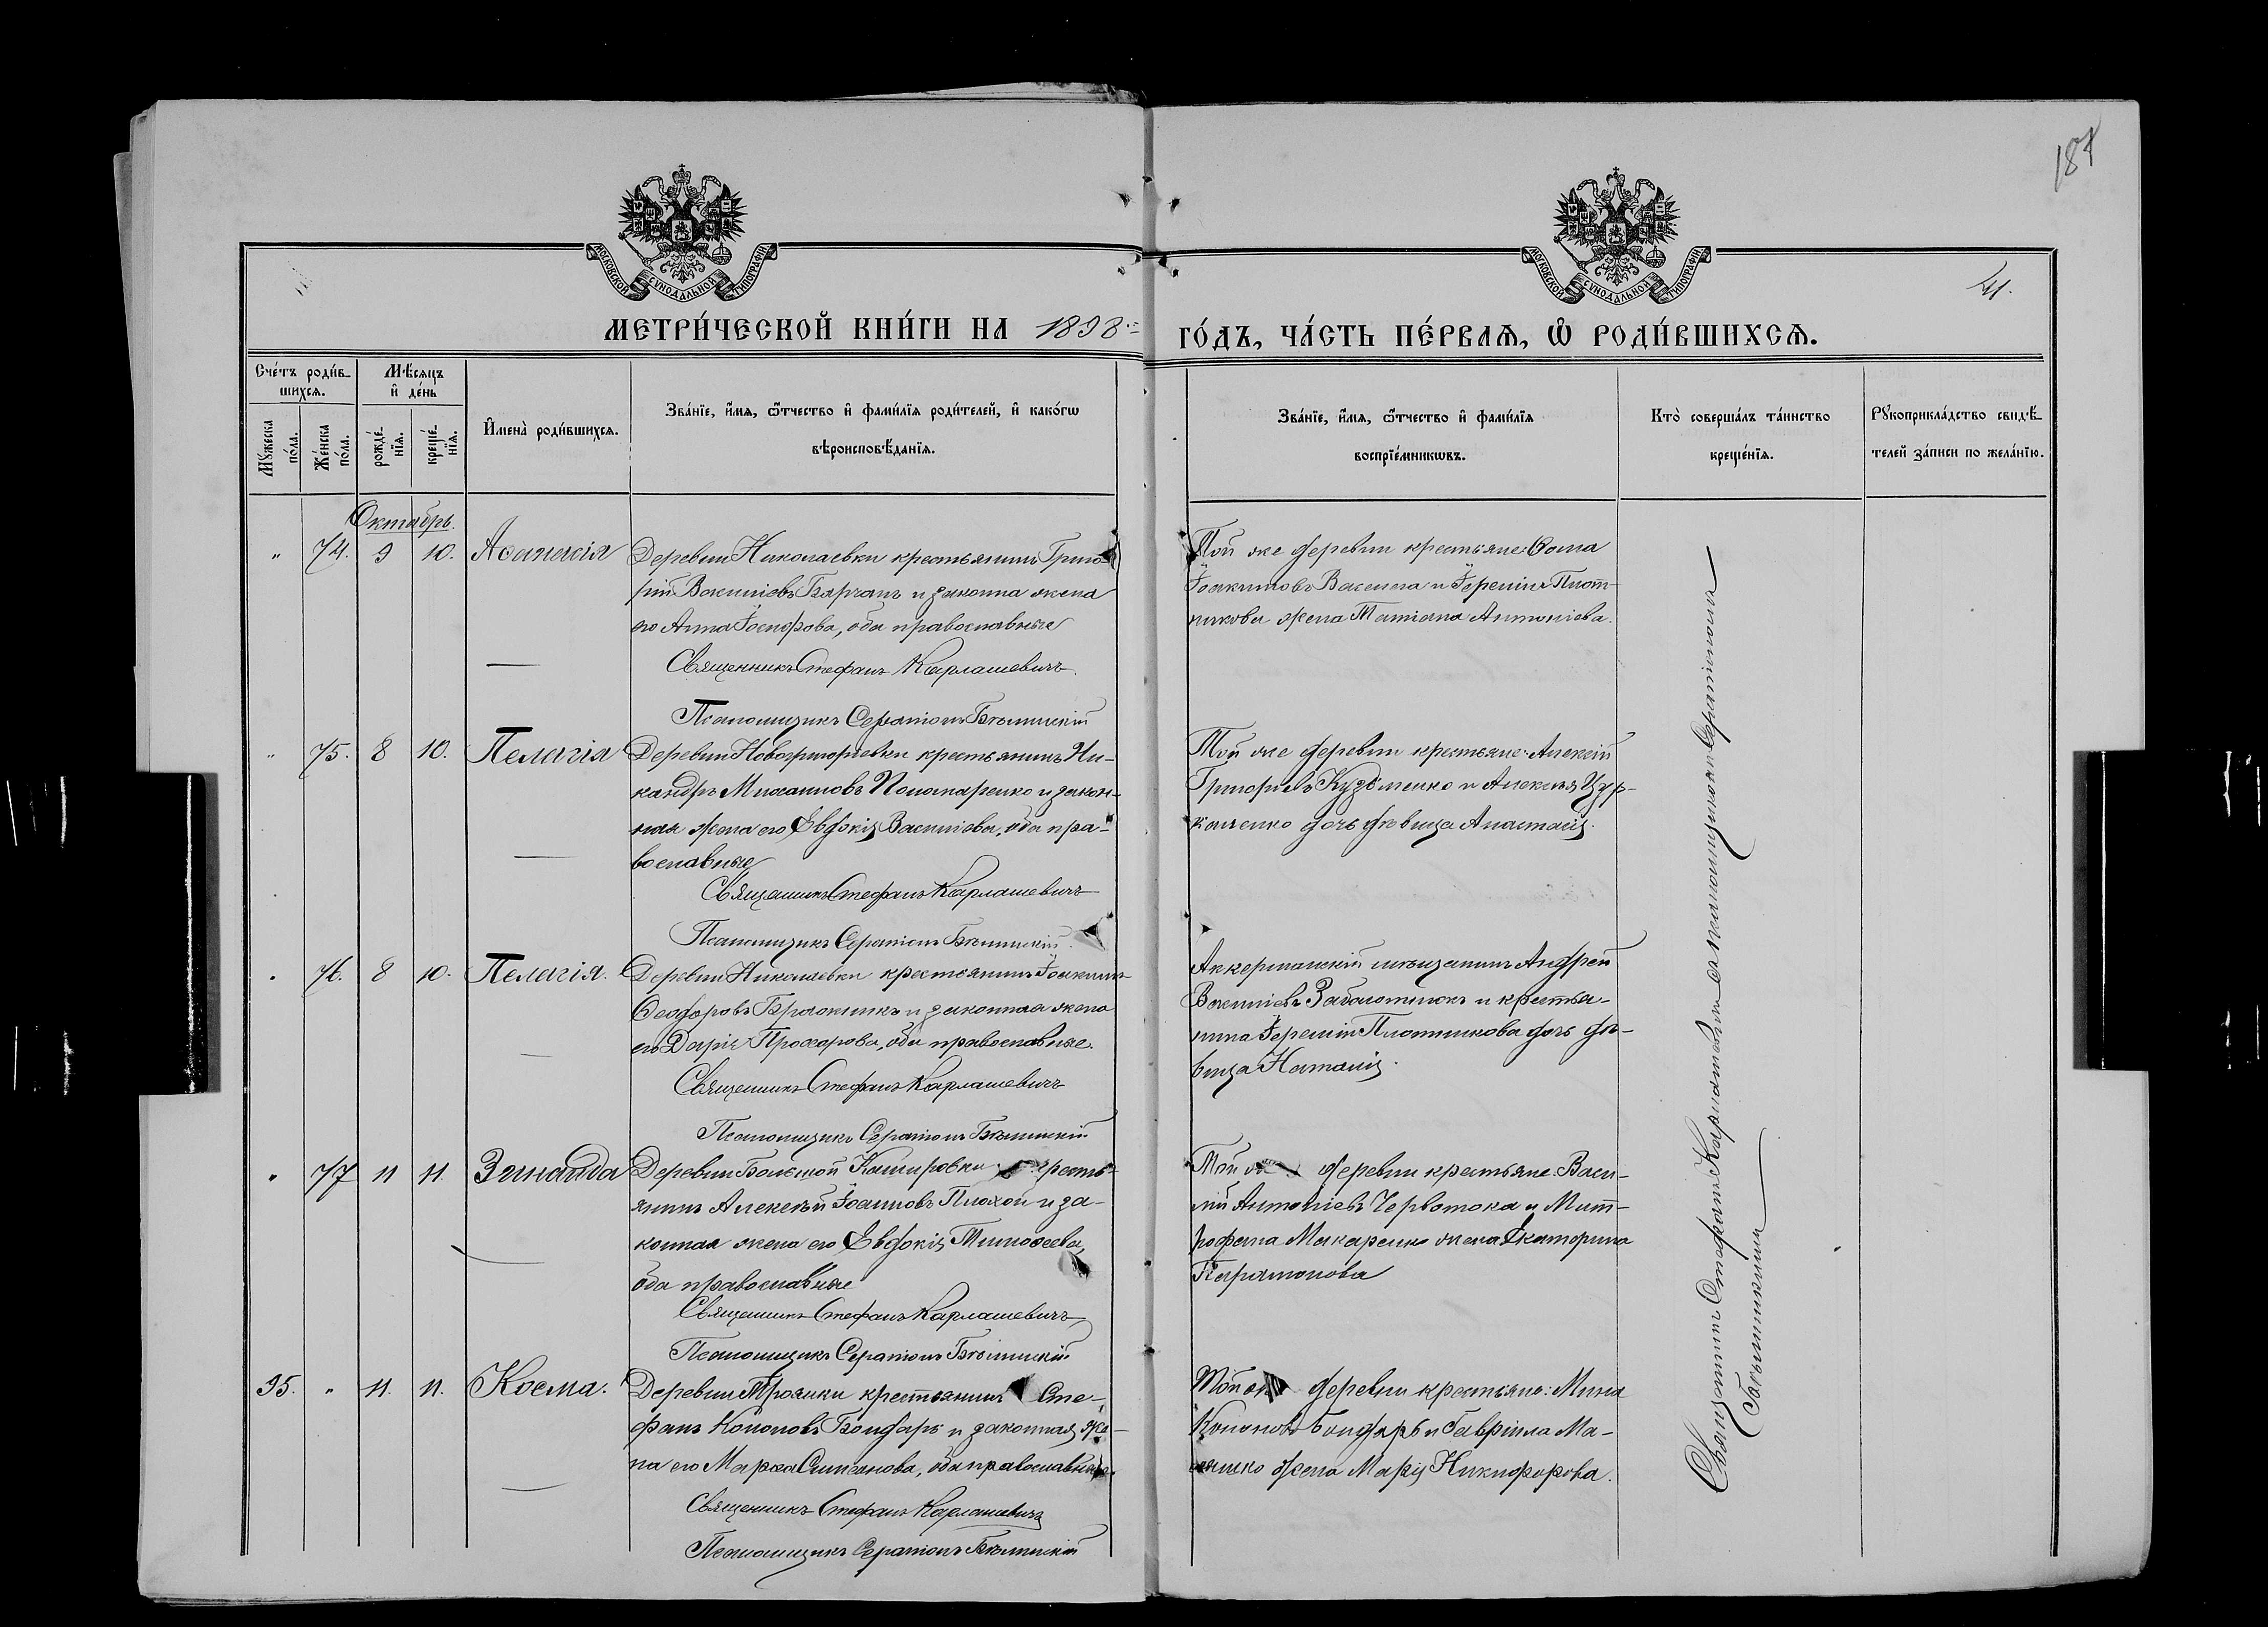 187
41.
МОСКОВСКОЙ СѴНОДАЛЬНОЙ ТИПОГРАФІИ
МОСКОВСКОЙ СѴНОДАЛЬНОЙ ТИПОГРАФІИ
МЕТРИ́ЧЕСКОЙ КНИ́ГИ НА 1898
ГО́ДЪ, ЧА́СТЬ ПЕ́РВАѦ, Ѡ҆ РОДИ́ВШИХСѦ.
Сче́тъ роди́в-
шихсѧ.
Мꙋ́жеска по́ла.
Же́нска по́ла.
Мѣ́сѧцъ
и҆ де́нь
рожде́-
нїѧ.
креще́-
нїѧ.
И҆мена̀ роди́вшихсѧ.
Зва́нїе, и҆́мѧ, ѻ҆́тчество и҆ фами́лїѧ роди́телей, и҆ како́гѡ
вѣроисповѣ́данїѧ.
Зва́нїе, и҆́мѧ, ѻ҆́тчество и҆ фами́лїѧ
воспрїе́мникѡвъ.
Кто̀ соверша́лъ та́инство
креще́нїѧ.
Рꙋкоприкла́дство свидѣ́-
телей за́писи по жела́нїю.
Октябрь.
" 74. 9 10. Аѳанасія
Деревни Николаевки крестьянинъ Григо-
рій Василіевъ и законна жена
его Анна Іосифова, оба православные
Священникъ Стефанъ Карлашевичъ
Псаломщикъ Серапіонъ Бѣлинскій
Той же деревни крестьяне: Ѳома
Іоакимовъ Василега и Іереміи Плот-
никова жена Татіана Антоніева.
" 75. 8 10. Пелагія
Деревни Новогригорьевки крестьянинъ Ни-
кандръ Михаиловъ Пономаренко и закон-
ная жена его Евдокія Василіова, оба пра-
вославные
Священникъ Стефанъ Карлашевичъ
Псаломщикъ Серапіонъ Бѣлинскій
Той же деревни крестьяне: Алексій
Григорьевъ Кузьменко и Алексія Цур-
каленко дочь дѣвица Анастасія.
" 76. 8 10. Пелагія.
Деревни Николаевки крестьянинъ Іоакимъ
Ѳеодоровъ и законная жена
его Дарія Прохорова, оба православные.
Священникъ Стефанъ Карлашевичъ
Псаломщикъ Серапіонъ Бѣлинскій
Аккерманскій мѣщанинъ Андрей
Василіевъ Заболотнюкъ и крестья-
нина Іереміи Плотникова дочь дѣ-
вица Наталія.
" 77 11 11. Зинаида
Деревни Большой Катировки кресть-
янинъ Алексѣй Іоанновъ Плохой и за-
конная жена его Евдокія Тимоѳеева,
оба православные
Священникъ Стефанъ Карлашевичъ
Псаломщикъ Серапіонъ Бѣлинскій
Той же деревни крестьяне: Васи-
лій Антоніевъ Червотока и Мит-
рофана Макаренко жена Екатерина
Парамонова
35. " 11. 11. Косма.
Деревни Трояики крестьянинъ Сте-
фанъ Кононовъ Бондарь и законная же-
на его Марѳа Симеонова, оба православные.
Священникъ Стефанъ Карлашевичъ
Псаломщикъ Серапіонъ Бѣлинскій
Той же деревни крестьяне: Мина
Кононовъ Бондарь и Гавріила Ма-
жена Марія Никифорова.
Священникъ Стефанъ Карлашевичъ съ псаломщикомъ Серапіономъ
Бѣлинскимъ